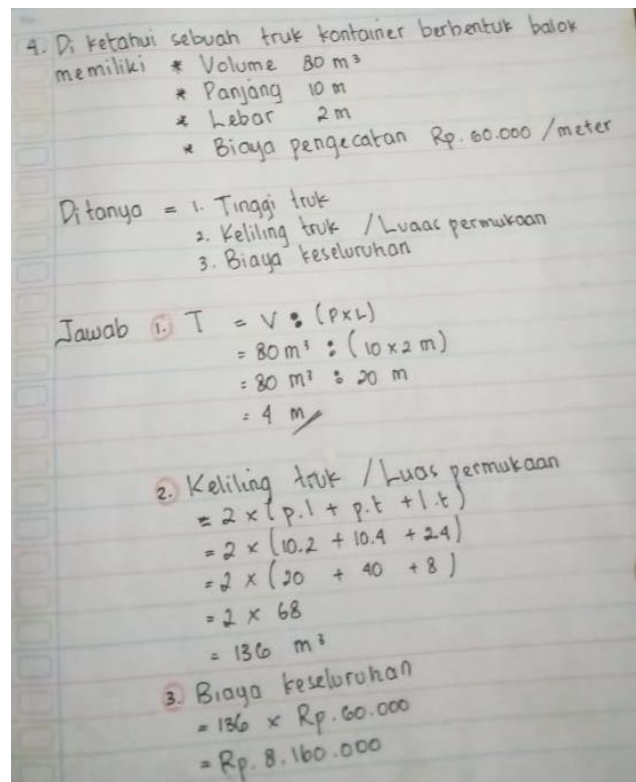 4. Di ketahui sebuah truk kontainer berbentuk balok
memiliki * Volume 80 m³
* Panjang 10 m
* Lebar 2 m
* Biaya pengecatan Rp. 60.000 /meter
Ditanya = 1. Tinggi truk
2. Keliling truk / Luaas permukaan
3. Biaya keseluruhan
Jawab 1. T = V : (PXL)
= 80 m³ : (10 x 2 m)
= 80 m³ : 20 m
= 4 m
2. Keliling truk / Luas permukaan
= 2 x (p.l + p.t + l.t)
= 2 x (10.2 + 10.4 + 24)
= 2 x (20 + 40 + 8)
= 2 x 68
= 136 m³
3. Biaya keseluruhan
= 136 x Rp. 60.000
= Rp. 8.160.000